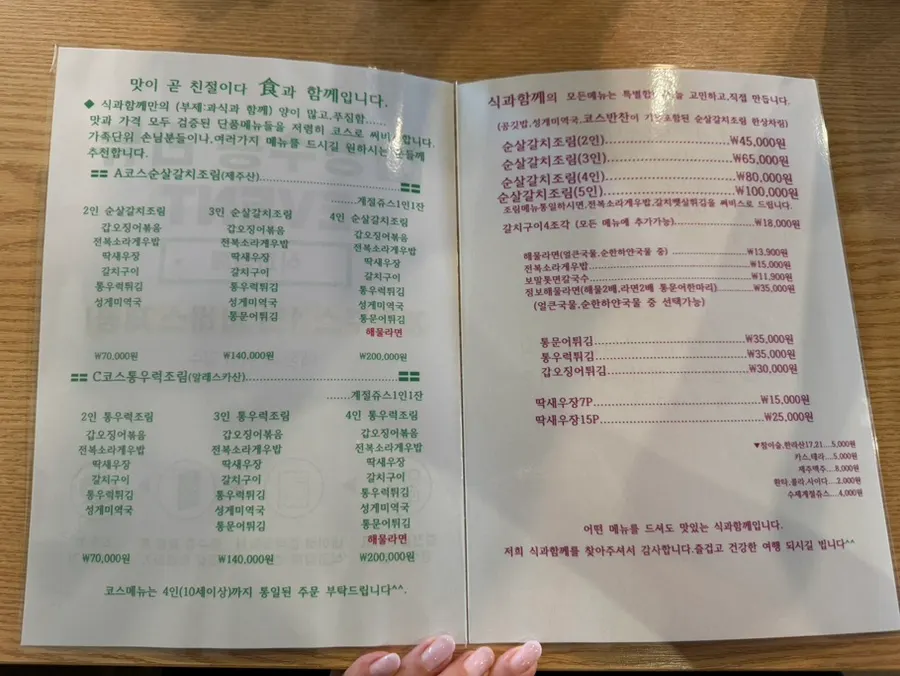 맛이 곧 친절이다 食과 함께입니다.
◆ 식과함께만의 (부제:과식과 함께) 양이 많고.푸짐함......
맛과 가격 모두 검증된 단품메뉴들을 저렴히 코스로 써비스합니다.
가족단위 손님분들이나.여러가지 메뉴를 드시길 원하시는 분들께
추천합니다.
A코스순살갈치조림(제주산)
계절쥬스1인1잔
2인 순살갈치조림 3인 순살갈치조림 4인 순살갈치조림
갑오징어볶음 갑오징어볶음 갑오징어볶음
전복소라게우밥 전복소라게우밥 전복소라게우밥
딱새우장 딱새우장 딱새우장
갈치구이 갈치구이 갈치구이
통우럭튀김 통우럭튀김 통우럭튀김
성게미역국 성게미역국 성게미역국
통문어튀김 통문어튀김
해물라면
₩70,000원 ₩140,000원 ₩200,000원
C코스통우럭조림(알래스카산)
계절쥬스1인1잔
2인 통우럭조림 3인 통우럭조림 4인 통우럭조림
갑오징어볶음 갑오징어볶음 갑오징어볶음
전복소라게우밥 전복소라게우밥 전복소라게우밥
딱새우장 딱새우장 딱새우장
갈치구이 갈치구이 갈치구이
통우럭튀김 통우럭튀김 통우럭튀김
성게미역국 성게미역국 성게미역국
통문어튀김 통문어튀김
해물라면
₩70,000원 ₩140,000원 ₩200,000원
코스메뉴는 4인(10세이상)까지 통일된 주문 부탁드립니다^^.
식과함께의 모든메뉴는 고민하고,직접 만듭니다.
(곰깃밥,성게미역국,코스반찬이 순살갈치조림 한상차림)
순살갈치조림(2인)........................₩45,000원
순살갈치조림(3인)........................₩65,000원
순살갈치조림(4인)........................₩80,000원
순살갈치조림(5인)........................₩100,000원
조림메뉴통일하시면,전복소라게우밥,갈치뼛살튀김을 써비스로 드립니다.
갈치구이4조각 (모든 메뉴에 추가가능)....................₩18,000원
해물라면(얼큰국물,순한하얀국물 중)....................₩13,900원
전복소라게우밥........................₩15,000원
보말톳면칼국수........................₩11,900원
점보해물라면(해물2배,라면2배 통문어한마리)..............₩35,000원
(얼큰국물,순한하얀국물 중 선택가능)
통문어튀김........................₩35,000원
통우럭튀김........................₩35,000원
갑오징어튀김........................₩30,000원
딱새우장7P........................₩15,000원
딱새우장15P........................₩25,000원
▼참이슬,한라산17,21...5,000원
카스,테라...5,000원
제주맥주...8,000원
환타,콜라,사이다...2,000원
수제계절쥬스...4,000원
어떤 메뉴를 드셔도 맛있는 식과함께입니다.
저희 식과함께를 찾아주셔서 감사합니다.즐겁고 건강한 여행 되시길 빕니다^^